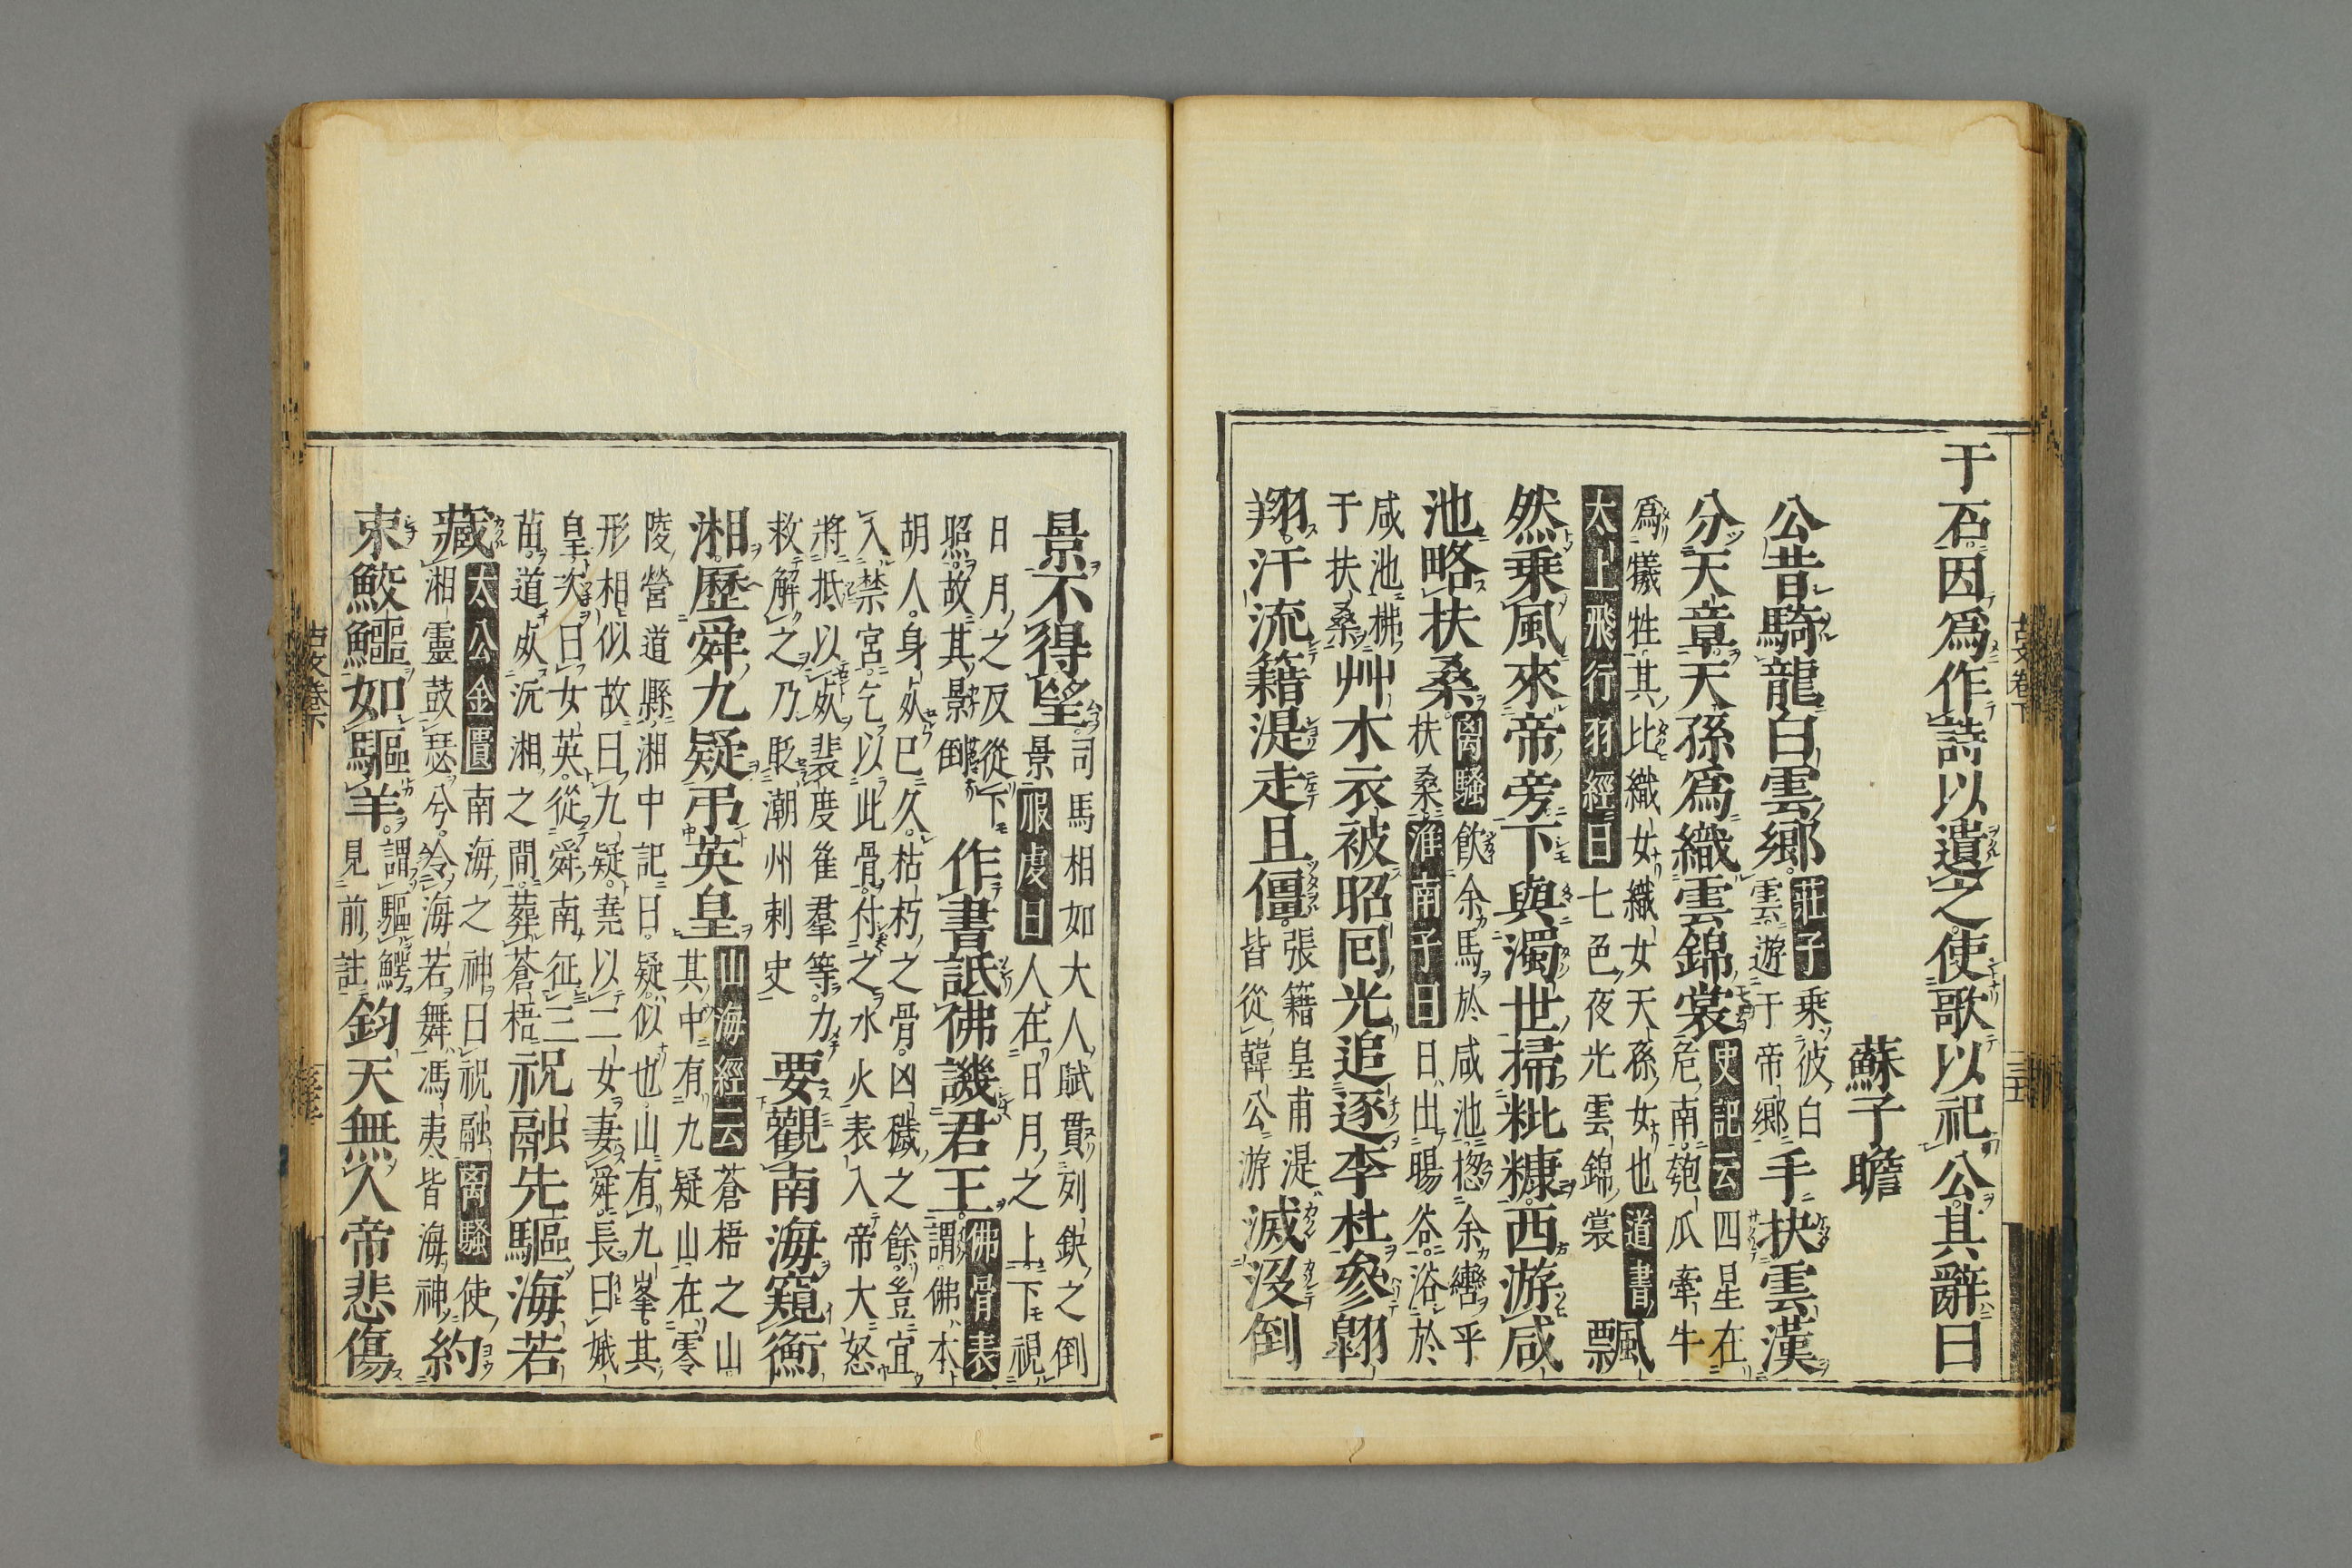 于石因爲作詩以遺之使歌以祀公其辭曰
蘇子瞻
公昔騎龍白雲鄉莊子乘彼白雲遊于帝鄉手抉雲漢
分天章天孫爲織雲錦裳史記云四星在危南匏瓜牽牛
爲犧牲其比織女織女天孫女也道書
太上飛行羽經曰七色夜光雲錦裳飄
然乘風來帝旁下與濁世掃粃糠西游咸
池略扶桑離騷飲余馬於咸池揔余轡乎扶桑淮南子曰日出暘谷浴於
咸池拂于扶桑艸木衣被昭囘光追逐李杜參翺
翔汗流籍湜走且僵張籍皇甫湜皆從韓公游滅没倒
景不得望司馬相如大人賦貫列缺之倒景服虔曰人在日月之上下視
日月之反從下照故其景倒作書詆佛譏君王佛骨表謂佛本
胡人身死已久枯朽之骨凶穢之餘豈宜入禁宮乞以此骨付之水火表入帝大怒
將抵以死裴度崔羣等力救解之乃貶潮州刺史要觀南海窺衡
湘歷舜九疑弔英皇山海經云蒼梧之山其中有九疑山在零
陵營道縣湘中記曰疑似也山有九峯其形相似故曰九疑堯以二女妻舜長曰娥
皇次曰女英從舜南征三苗道死沅湘之間葬蒼梧祝融先驅海若
藏太公金匱南海之神曰祝融离騷使湘靈鼓瑟兮令海若舞馮夷皆海神約
束鮫鱷如驅羊謂驅鰐見前註鈞天無人帝悲傷
古文卷下
三十五
古文卷下